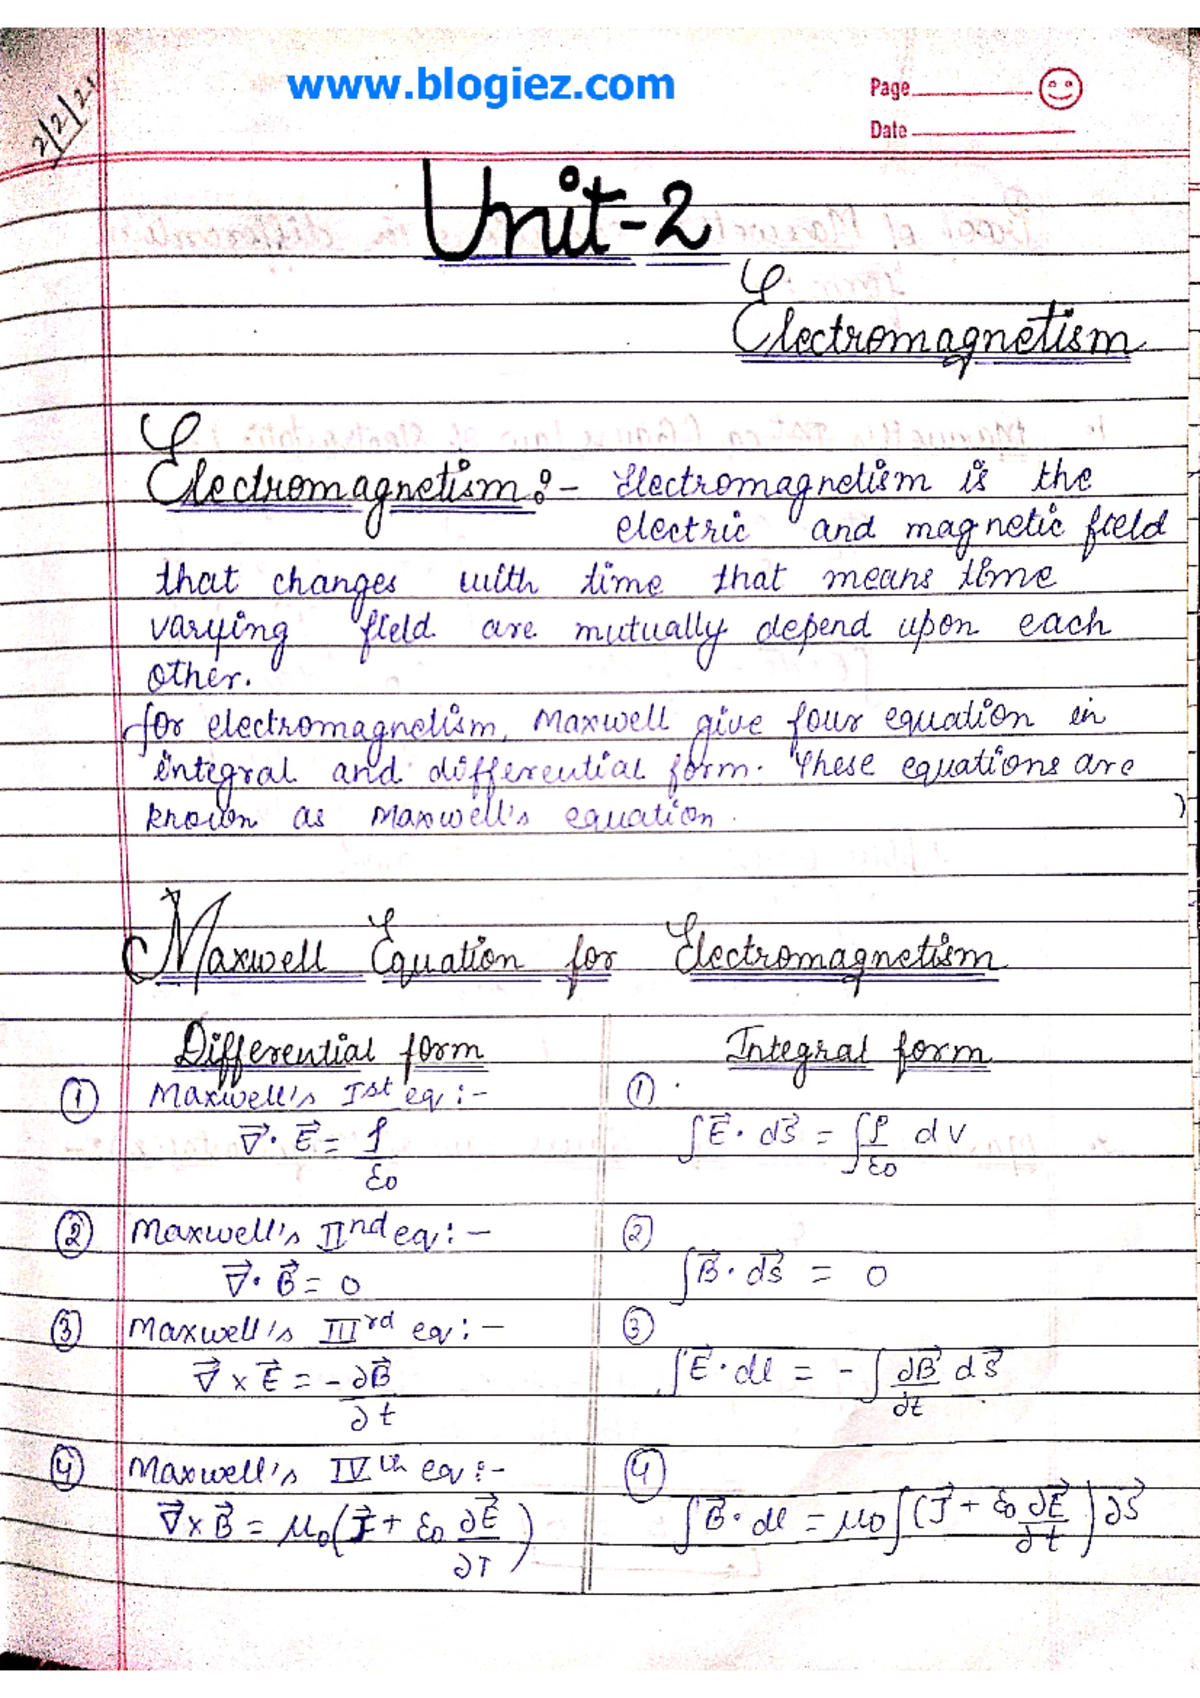 www.blogiez.com
Page
Date
2/2/21
Unit-2
Electromagnetism
Electromagnetism :- Electromagnetism is the
electric and magnetic field
that changes with time that means time
varying field are mutually depend upon each
other.
for electromagnetism, Maxwell give four equation in
integral and differential form. These equations are
known as Maxwell's equation.
Maxwell Equation for Electromagnetism
Differential form
Integral form
① Maxwell's Ist eq :-
①
∇⃗· E⃗ = ρ/ε0
∫E⃗· dS⃗ = ∫ρ/ε0 dv
② Maxwell's IInd eq :-
②
∇⃗· B⃗ = 0
∫B⃗· dS⃗ = 0
③ Maxwell's IIIrd eq :-
③
∇⃗ × E⃗ = -∂B⃗/∂t
∫E⃗· dl = -∫∂B⃗/∂t dS⃗
④ Maxwell's IVth eq :-
④
∇⃗ × B⃗ = μ0(J⃗ + ε0 ∂E⃗/∂T)
∫B⃗· dl = μ0∫(J⃗ + ε0 ∂E⃗/∂t)∂S⃗